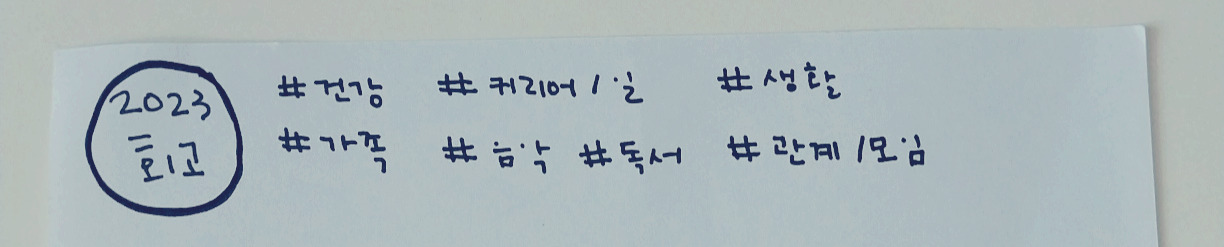 2023
회고
#건강 #커리어/일 #생활
#가족 #음악 #독서 #관계/모임